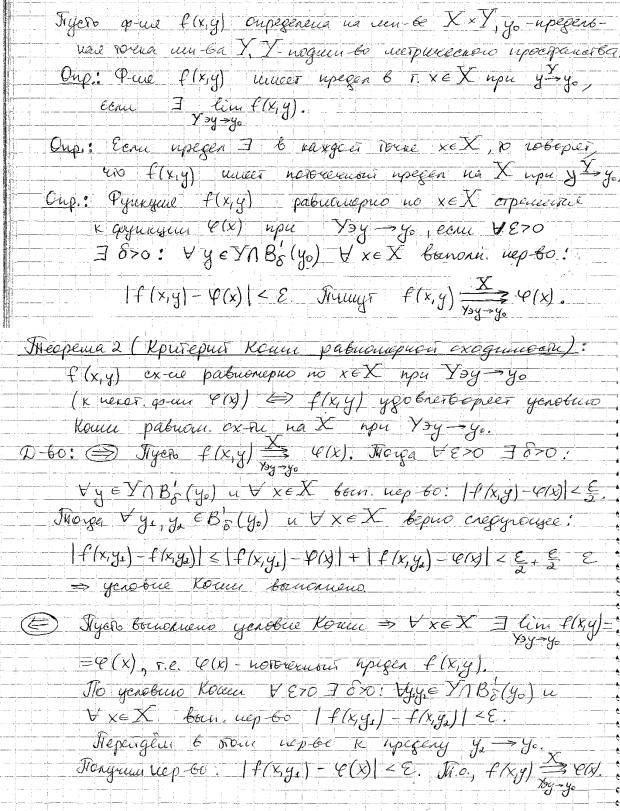 Пусть ф-ия f(x,y) определена на мн-ве X × Y, y₀ - предель-
ная точка мн-ва Y, Y - подмн-во метрического пространства.
Опр.: Ф-ия f(x,y) имеет предел в т. x∈X при y →^Y y₀,
если ∃ lim_{Y∋y→y₀} f(x,y).
Опр.: Если предел ∃ в каждой точке x∈X, то говорят,
что f(x,y) имеет поточечный предел на X при y →^Y y₀.
Опр.: Функция f(x,y) равномерно по x∈X стремится
к функции φ(x) при Y∋y→y₀, если ∀ε>0
∃ δ>0: ∀ y∈Y∩B'_δ(y₀) ∀ x∈X выполн. нер-во:
|f(x,y) - φ(x)| < ε. Пишут f(x,y) ⇉^X_{Y∋y→y₀} φ(x).
Теорема 2 (Критерий Коши равномерной сходимости):
f(x,y) сх-ся равномерно по x∈X при Y∋y→y₀
(к некот. ф-ии φ(x)) ⟺ f(x,y) удовлетворяет условию
Коши равном. сх-ти на X при Y∋y→y₀.
Д-во: ⇒ Пусть f(x,y) ⇉^X_{Y∋y→y₀} φ(x). Тогда ∀ε>0 ∃ δ>0:
∀ y∈Y∩B'_δ(y₀) и ∀ x∈X вып. нер-во: |f(x,y)-φ(x)|<ε/2.
Тогда ∀ y₁,y₂ ∈B'_δ(y₀) и ∀ x∈X верно следующее:
|f(x,y₁)-f(x,y₂)| ≤ |f(x,y₁)-φ(x)| + |f(x,y₂)-φ(x)| < ε/2 + ε/2 ε
⇒ условие Коши выполнено.
⇐ Пусть выполнено условие Коши ⇒ ∀ x∈X ∃ lim_{Y∋y→y₀} f(x,y)=
=φ(x), т.е. φ(x) - поточечный предел f(x,y).
По условию Коши ∀ ε>0 ∃ δ>0: ∀y₁,y₂∈Y∩B'_δ(y₀) и
∀ x∈X вып. нер-во |f(x,y₁) - f(x,y₂)| < ε.
Перейдём в этом нер-ве к пределу y₂→y₀.
Получим нер-во: |f(x,y₁) - φ(x)| < ε. Т.о., f(x,y) ⇉^X_{Y∋y→y₀} φ(x).